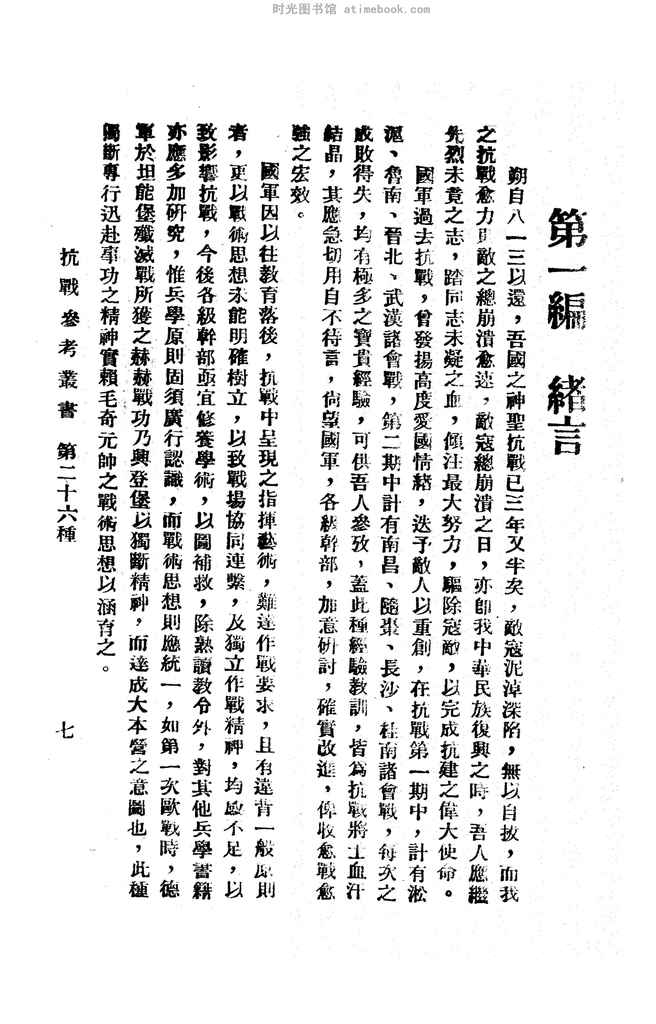 时光图书馆 atimebook.com
第一編　緒言
朔自八一三以還，吾國之神聖抗戰已三年又半矣，敵寇泥淖深陷，無以自拔，而我
之抗戰愈力則敵之總崩潰愈速，敵寇總崩潰之日，亦卽我中華民族復興之時，吾人應繼
先烈未竟之志，踏同志未凝之血，傾注最大努力，驅除寇敵，以完成抗建之偉大使命。
國軍過去抗戰，曾發揚高度愛國情緒，迭予敵人以重創，在抗戰第一期中，計有淞
滬、魯南、晉北、武漢諸會戰，第二期中計有南昌、隨棗、長沙、桂南諸會戰，每次之
成敗得失，均有極多之寶貴經驗，可供吾人參攷，蓋此種經驗教訓，皆爲抗戰將士血汗
結晶，其應急切用自不待言，尙望國軍，各級幹部，加意研討，確實改進，俾收愈戰愈
強之宏效。
國軍因以往教育落後，抗戰中呈現之指揮藝術，難達作戰要求，且有違背一般原則
者，更以戰術思想未能明確樹立，以致戰場協同連繫，及獨立作戰精神，均感不足，以
致影響抗戰，今後各級幹部亟宜修養學術，以圖補救，除熟讀教令外，對其他兵學書籍
亦應多加研究，惟兵學原則固須廣行認識，而戰術思想則應統一，如第一次歐戰時，德
軍於坦能堡殲滅戰所獲之赫赫戰功乃興登堡以獨斷精神，而達成大本營之意圖也，此種
獨斷專行迅赴事功之精神實賴毛奇元帥之戰術思想以涵育之。
抗戰參考叢書　第二十六種
七